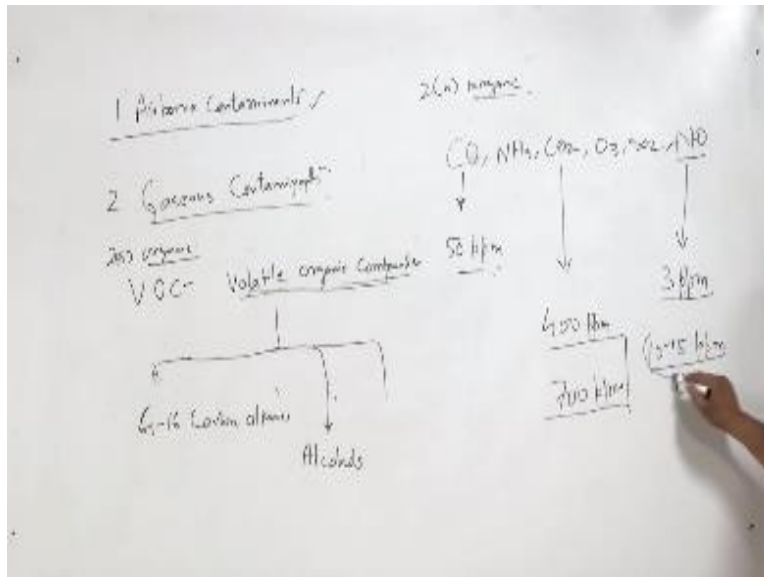 1 Airborne Contaminants ✓
2 Gaseous Contaminants
organic
VOC- Volatile organic Compounds
Alcohols
2(a) inorganic
CO, NH3, CO2, O3, SO2, NO
50 ppm
400 ppm
700 ppm
3 ppm
ppm